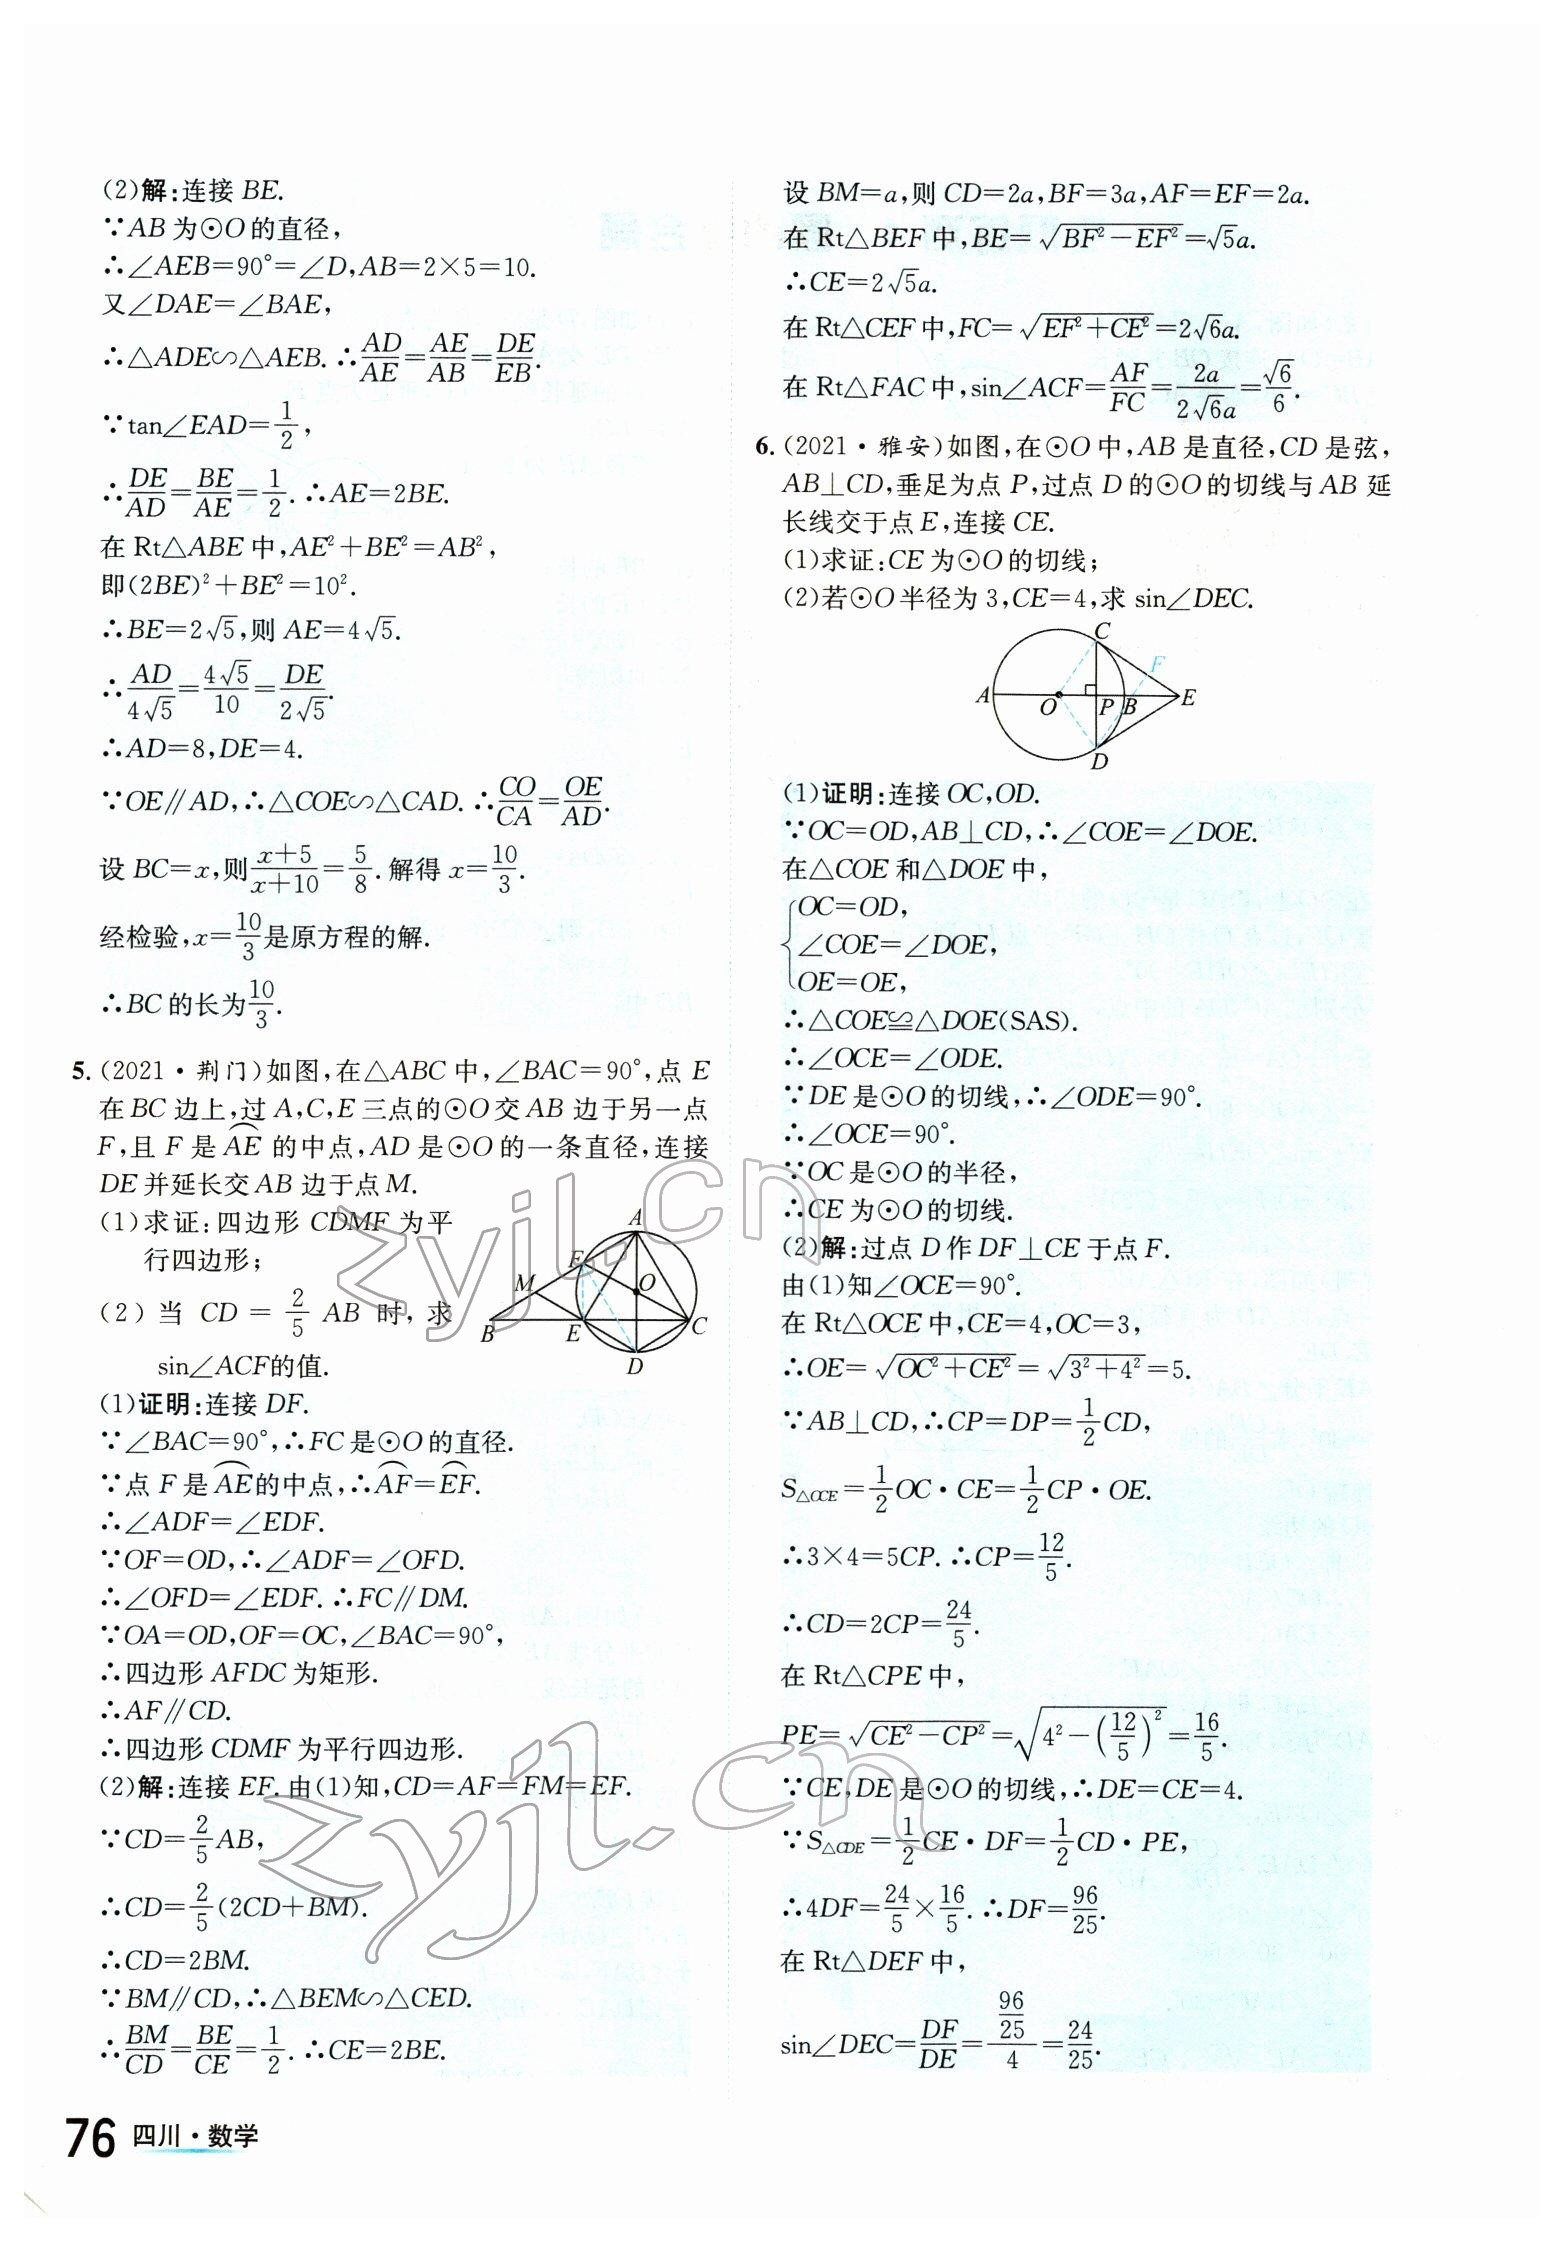 (2)解:连接 BE.
∵AB 为⊙O 的直径,
∴∠AEB=90°=∠D,AB=2×5=10.
又∠DAE=∠BAE,
∴△ADE∽△AEB. ∴AD/AE=AE/AB=DE/EB.
∵tan∠EAD=1/2,
∴DE/AD=BE/AE=1/2. ∴AE=2BE.
在 Rt△ABE 中,AE²+BE²=AB²,
即(2BE)²+BE²=10².
∴BE=2√5,则 AE=4√5.
∴AD/4√5=4√5/10=DE/2√5.
∴AD=8,DE=4.
∵OE∥AD,∴△COE∽△CAD. ∴CO/CA=OE/AD.
设 BC=x,则(x+5)/(x+10)=5/8. 解得 x=10/3.
经检验,x=10/3是原方程的解.
∴BC 的长为10/3.
5. (2021·荆门)如图,在△ABC 中,∠BAC=90°,点 E
在 BC 边上,过 A,C,E 三点的⊙O 交 AB 边于另一点
F,且 F 是 AE⌒ 的中点,AD 是⊙O 的一条直径,连接
DE 并延长交 AB 边于点 M.
(1)求证:四边形 CDMF 为平
行四边形;
(2)当 CD=2/5 AB 时,求
sin∠ACF的值.
A
F
M
O
B
E
C
D
(1)证明:连接 DF.
∵∠BAC=90°,∴FC 是⊙O 的直径.
∵点 F 是AE⌒的中点,∴AF⌒=EF⌒.
∴∠ADF=∠EDF.
∵OF=OD,∴∠ADF=∠OFD.
∴∠OFD=∠EDF. ∴FC∥DM.
∵OA=OD,OF=OC,∠BAC=90°,
∴四边形 AFDC 为矩形.
∴AF∥CD.
∴四边形 CDMF 为平行四边形.
(2)解:连接 EF. 由(1)知,CD=AF=FM=EF.
∵CD=2/5AB,
∴CD=2/5(2CD+BM).
∴CD=2BM.
∵BM∥CD,∴△BEM∽△CED.
∴BM/CD=BE/CE=1/2. ∴CE=2BE.
76 四川·数学
设 BM=a,则 CD=2a,BF=3a,AF=EF=2a.
在 Rt△BEF 中,BE=√(BF²-EF²)=√5a.
∴CE=2√5a.
在 Rt△CEF 中,FC=√(EF²+CE²)=2√6a.
在 Rt△FAC 中,sin∠ACF=AF/FC=2a/2√6a=√6/6.
6. (2021·雅安)如图,在⊙O 中,AB 是直径,CD 是弦,
AB⊥CD,垂足为点 P,过点 D 的⊙O 的切线与 AB 延
长线交于点 E,连接 CE.
(1)求证:CE 为⊙O 的切线;
(2)若⊙O 半径为 3,CE=4,求 sin∠DEC.
C
F
A
O
P
B
E
D
(1)证明:连接 OC,OD.
∵OC=OD,AB⊥CD,∴∠COE=∠DOE.
在△COE 和△DOE 中,
OC=OD,
∠COE=∠DOE,
OE=OE,
∴△COE≌△DOE(SAS).
∴∠OCE=∠ODE.
∵DE 是⊙O 的切线,∴∠ODE=90°.
∴∠OCE=90°.
∵OC 是⊙O 的半径,
∴CE 为⊙O 的切线.
(2)解:过点 D 作 DF⊥CE 于点 F.
由(1)知∠OCE=90°.
在 Rt△OCE 中,CE=4,OC=3,
∴OE=√(OC²+CE²)=√(3²+4²)=5.
∵AB⊥CD,∴CP=DP=1/2CD,
S△OCE=1/2OC·CE=1/2CP·OE.
∴3×4=5CP. ∴CP=12/5.
∴CD=2CP=24/5.
在 Rt△CPE 中,
PE=√(CE²-CP²)=√(4²-(12/5)²)=16/5.
∵CE,DE 是⊙O 的切线,∴DE=CE=4.
∵S△CDE=1/2CE·DF=1/2CD·PE,
∴4DF=24/5×16/5. ∴DF=96/25.
在 Rt△DEF 中,
sin∠DEC=DF/DE=(96/25)/4=24/25.
zyjl.cn
zyjl.cn